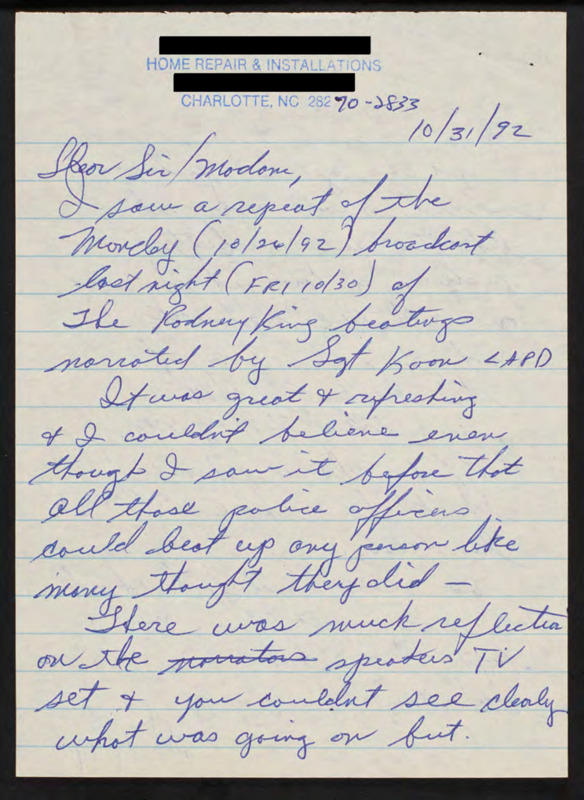 HOME REPAIR & INSTALLATIONS
CHARLOTTE, NC 28270-2833
10/31/92
Dear Sir/Madam,
I saw a repeat of the
Monday (10/26/92) broadcast
last night (FRI 10/30) of
The Rodney King beatings
narrated by Sgt Koon LAPD
It was great & refreshing
& I couldn't believe even
though I saw it before that
all those police officers
could beat up any person like
many thought they did —
There was much reflection
on the narrators speakers TV
set & you couldn't see clearly
what was going on but.